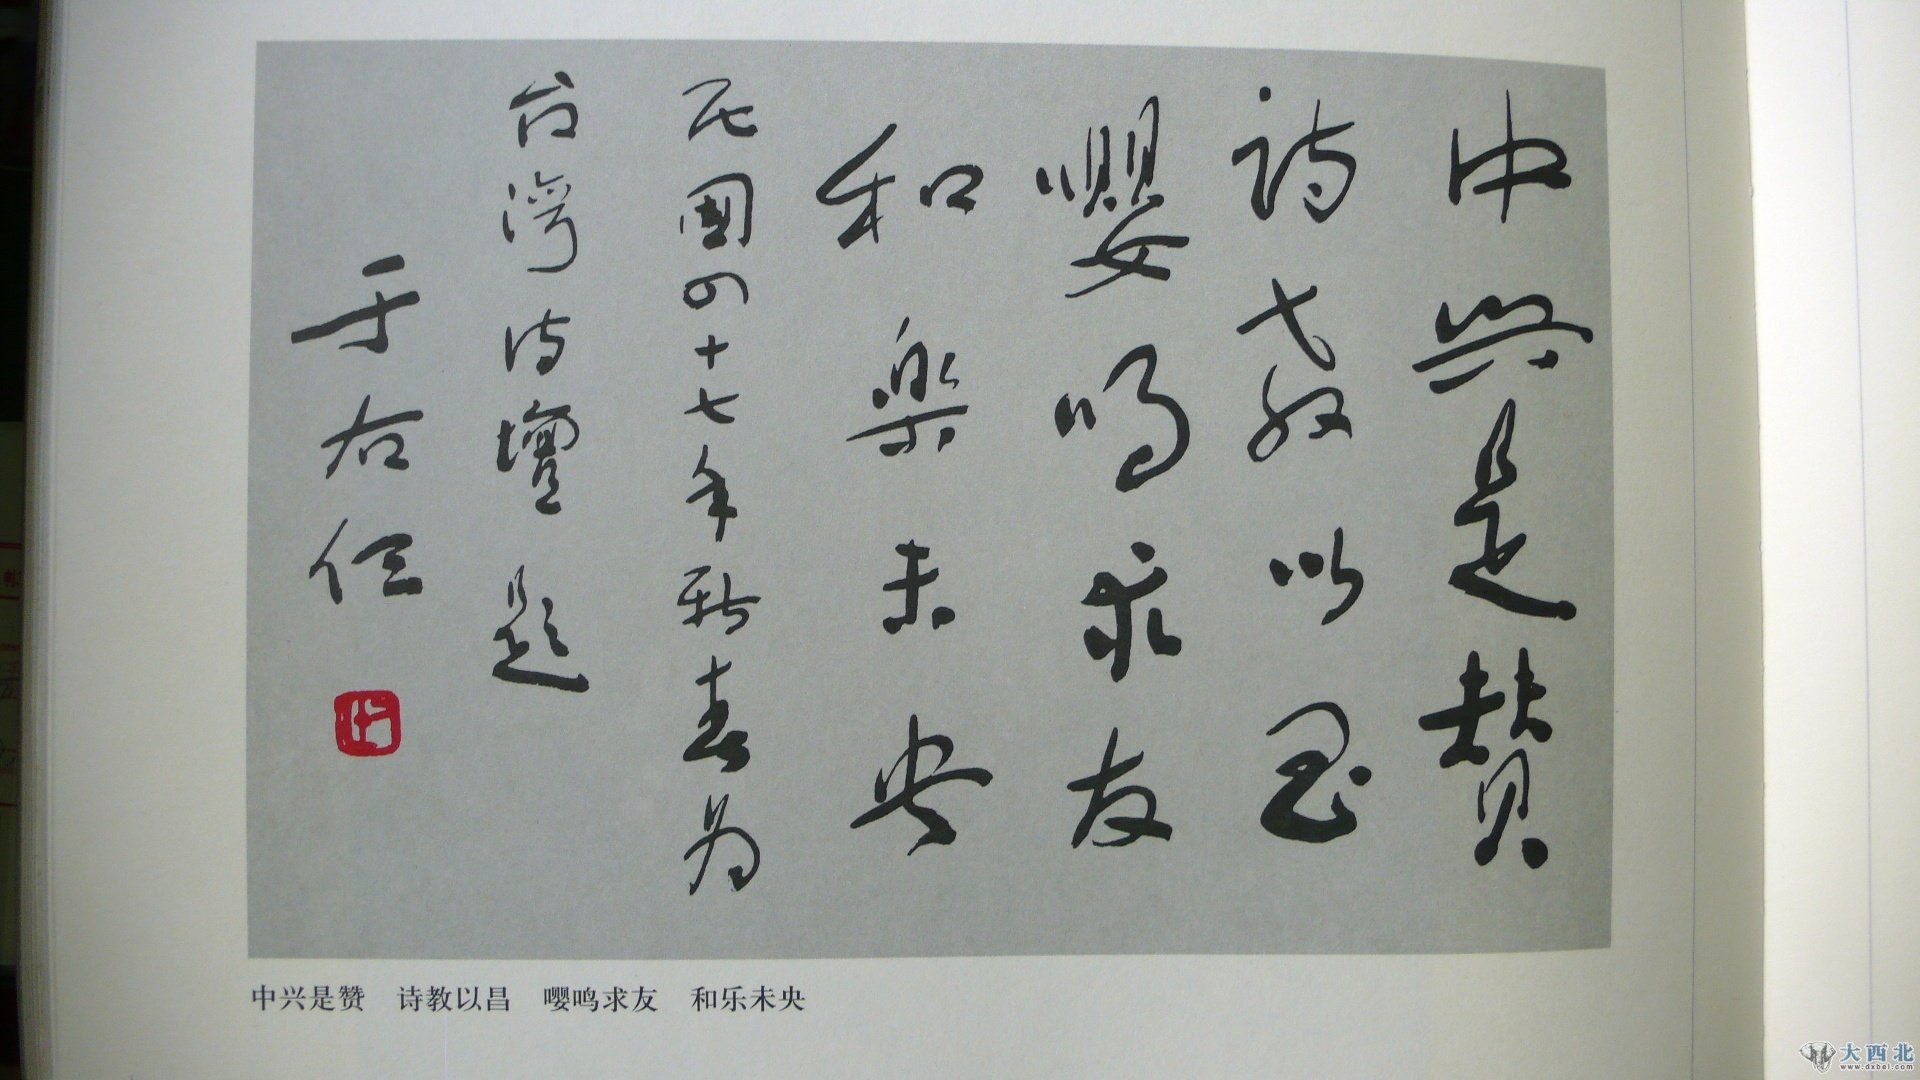 中興是贊
詩教以昌
嚶鳴求友
和樂未央
民國四十七年新春为
台灣詩壇題
于右任
中兴是赞　诗教以昌　嘤鸣求友　和乐未央
大西北
www.dxbei.com